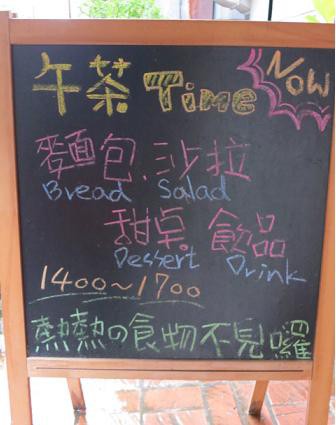 午茶 Time NOW
麵包.沙拉
Bread Salad
甜桌 飲品
Dessert Drink
1400~1700
熱熱の食物不見囉